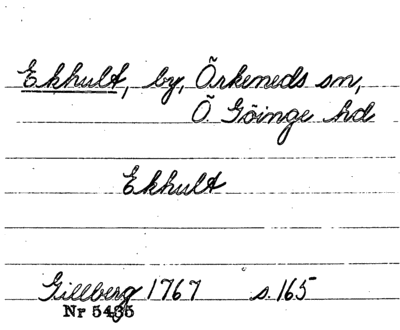 Ekhult, by, Örkeneds sn,
Ö Göinge hd
Ekhult
Gillberg 1767 s. 165
Nr 5435